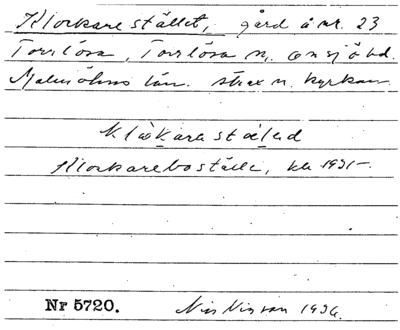 Klockarestället, gård å nr. 23
Torrlösa, Torrlösa sn, Onsjö hd.
Malmöhus län. strax n. kyrkan
Klåkarestäled
Klockareboställe, kb 1931-
Nr 5720. Nils Nilsson 1936.